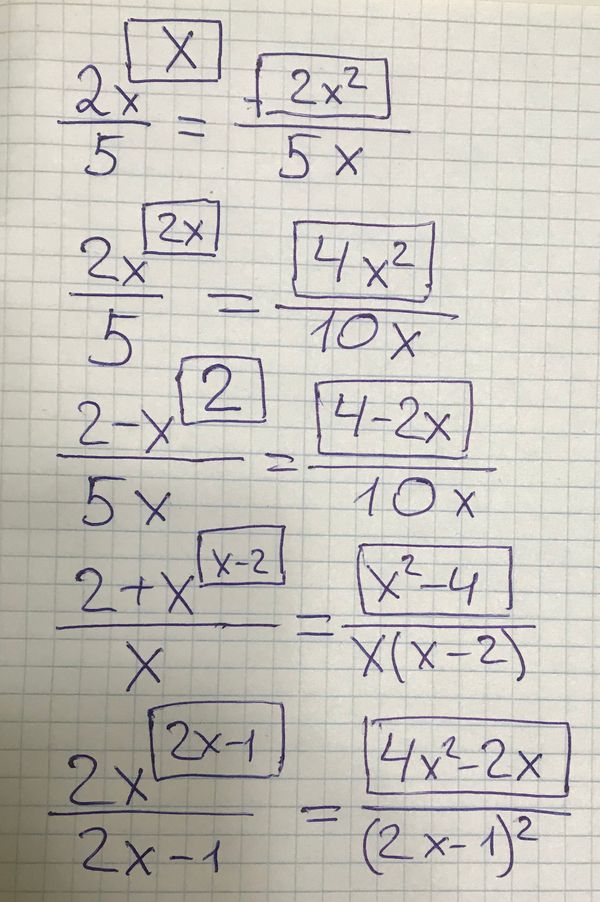 2x/5 [x] = [2x²]/5x
2x/5 [2x] = [4x²]/10x
2-x/5x [2] = [4-2x]/10x
2+x/x [x-2] = [x²-4]/x(x-2)
2x/2x-1 [2x-1] = [4x²-2x]/(2x-1)²